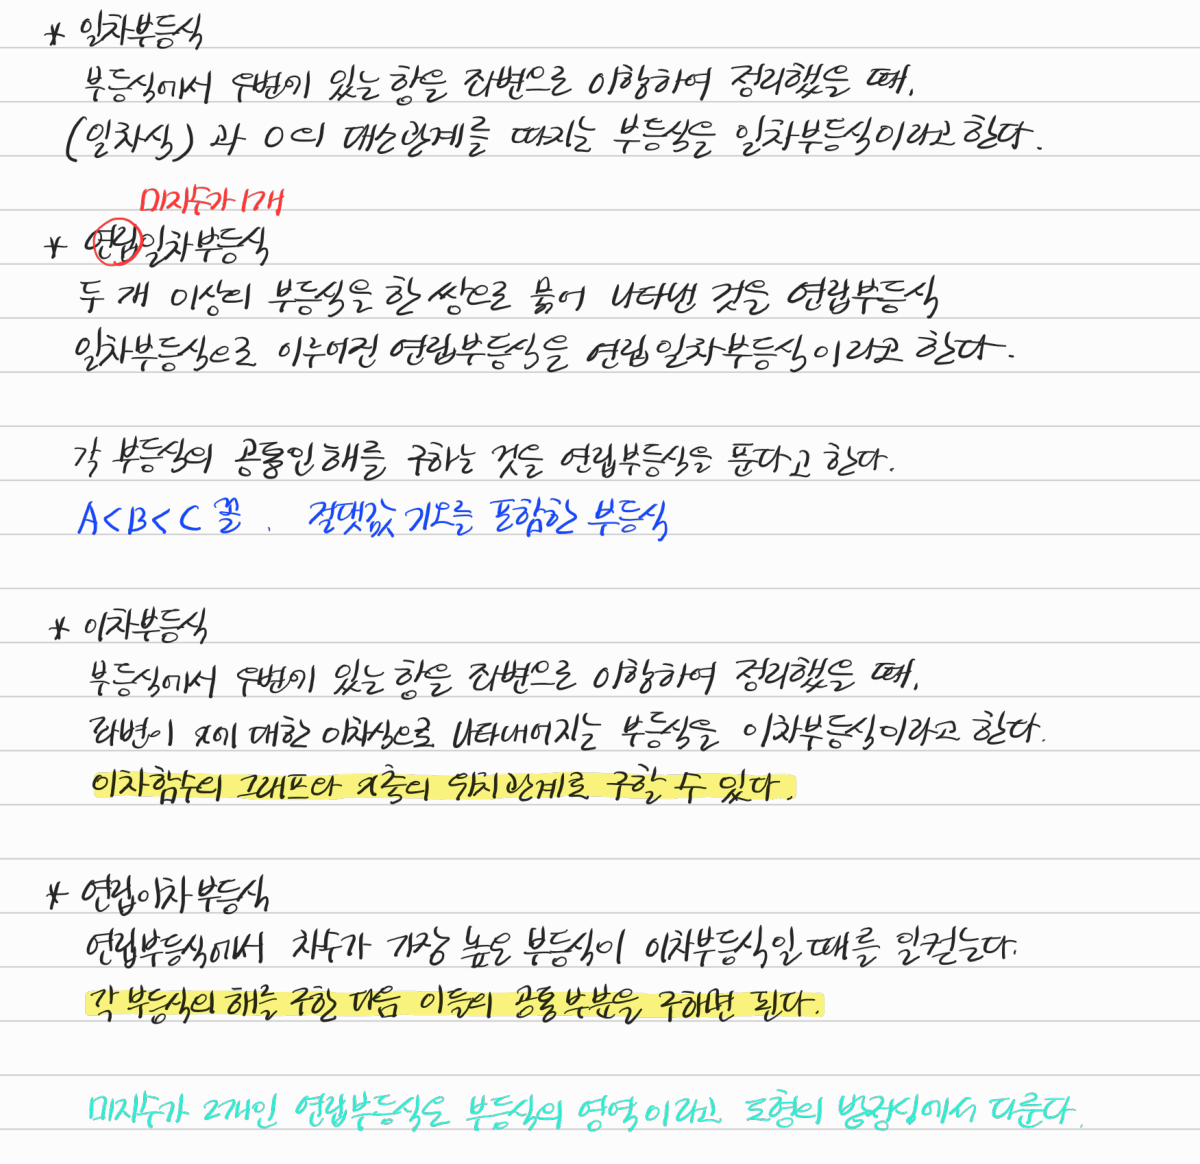 * 일차부등식
부등식에서 우변이 있는 항을 좌변으로 이항하여 정리했을 때,
(일차식)과 0의 대소관계를 따지는 부등식을 일차부등식이라고 한다.
미지수가 1개
* 연립일차부등식
두 개 이상의 부등식을 한 쌍으로 묶어 나타낸 것을 연립부등식
일차부등식으로 이루어진 연립부등식을 연립일차부등식이라고 한다.
각 부등식의 공통인 해를 구하는 것을 연립부등식을 푼다고 한다.
A<B<C 꼴, 절댓값 기호를 포함한 부등식
* 이차부등식
부등식에서 우변이 있는 항을 좌변으로 이항하여 정리했을 때,
좌변이 x에 대한 이차식으로 나타내어지는 부등식을 이차부등식이라고 한다.
이차함수의 그래프와 x축의 위치관계로 구할 수 있다.
* 연립이차부등식
연립부등식에서 차수가 가장 높은 부등식이 이차부등식일 때를 일컫는다.
각 부등식의 해를 구한 다음 이들의 공통부분을 구하면 된다.
미지수가 2개인 연립부등식은 부등식의 영역이라고 도형의 방정식에서 다룬다.